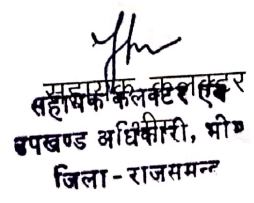 सहायक कलक्टर
सहायक कलक्टर एवं
उपखण्ड अधिकारी, भीम
जिला-राजसमन्द